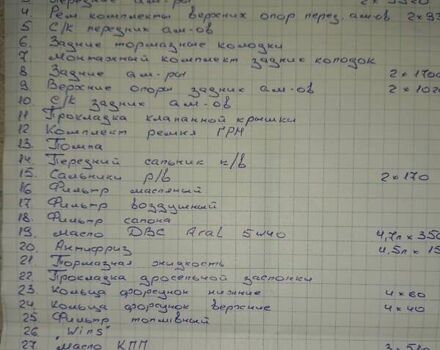 3. Передние ам-ры 2 x 3320
4. Рем. комплекты верхних опор перед. ам-ов 2 x 93
5 С/К передних ам-ов
6. Задние тормазные колодки
7 Монтажный комплект задних колодок
8 Задние ам-ры 2 x 1700
9. Верхние опоры задних ам-ов 2 x 102
10. С/К задних ам-ов
11 Прокладка клапанной крышки
12 Комплект ремня ГРМ
13. Помпа
14. Передний сальник к/в
15. Сальники р/в 2 x 170
16 Фильтр масляный
17. Фильтр воздушный
18. Фильтр салона
19. Масло ДВС Aral 5W40 4,7л x 350
20. Антифриз 4,5л x 15
21 Тормазная жидкость
22 Прокладка дросельной заслонки
23 Кольца форсунок нижние 4 x 60
24. Кольца форсунок верхние 4 x 40
25 Фильтр топливный
26 "Wins"
27. Масло КПП